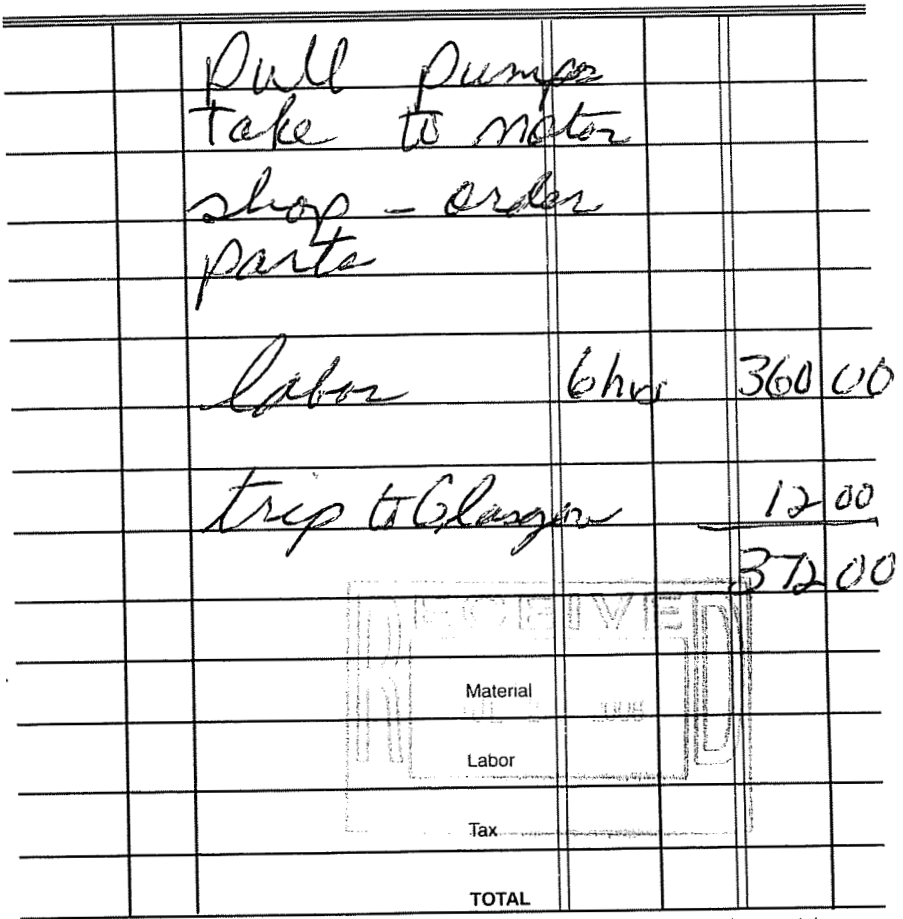 Pull Pumps
take to motor
shop - order
parts
labor 6 hrs 360 00
trip to Glasgow 12 00
372 00
RECEIVED
Material
Labor
Tax
TOTAL